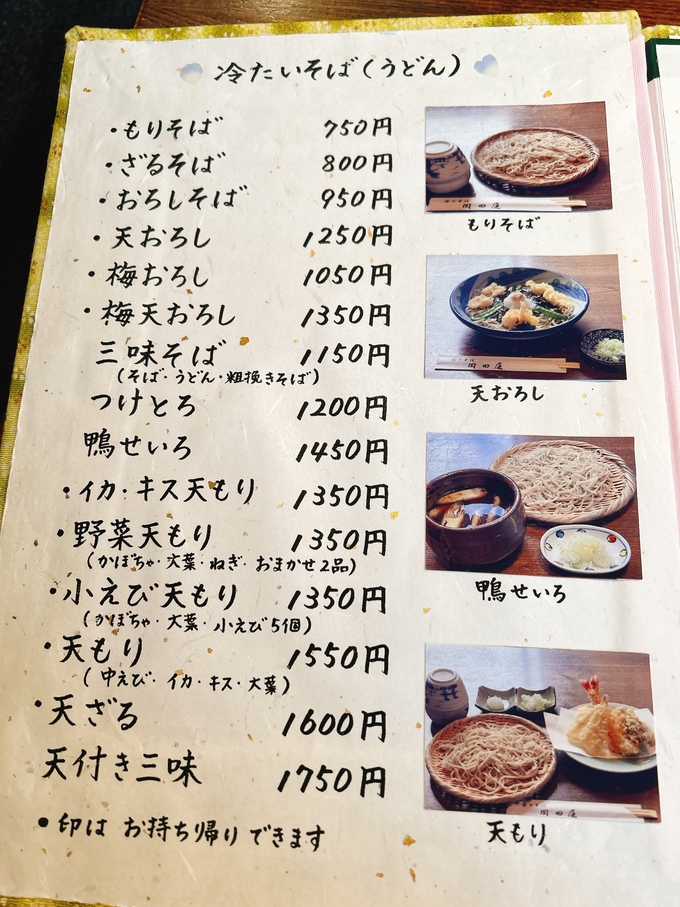 冷たいそば(うどん)
・もりそば 750円
・ざるそば 800円
・おろしそば 950円
・天おろし 1250円
・梅おろし 1050円
・梅天おろし 1350円
三味そば 1150円
(そば・うどん・粗挽きそば)
つけとろ 1200円
鴨せいろ 1450円
・イカ・キス天もり 1350円
・野菜天もり 1350円
(かぼちゃ・大葉・ねぎ・おまかせ2品)
・小えび天もり 1350円
(かぼちゃ・大葉・小えび5個)
・天もり 1550円
(中えび・イカ・キス・大葉)
・天ざる 1600円
天付き三味 1750円
●印は お持ち帰りできます
もりそば
天おろし
鴨せいろ
天もり